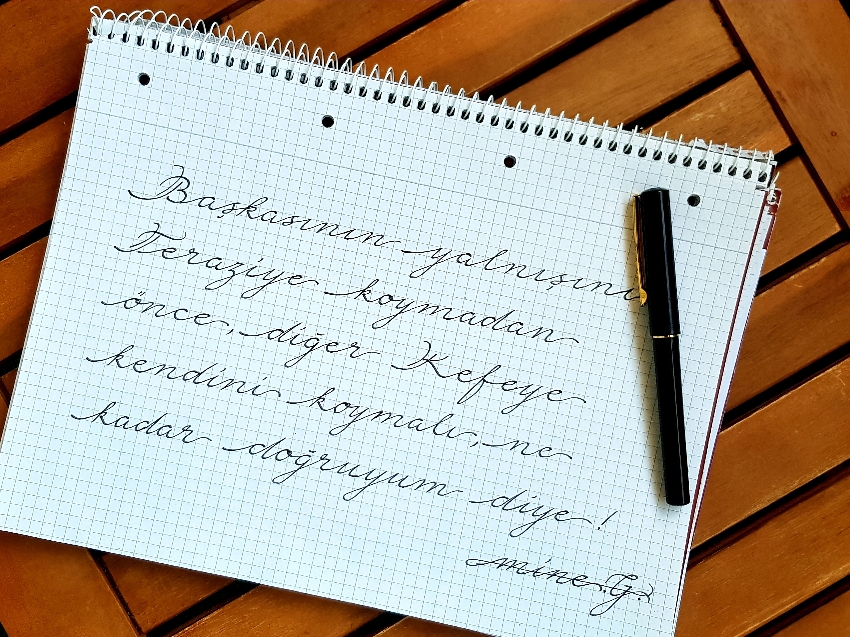 Başkasının yalnışını
Teraziye koymadan
önce, diğer Kefeye
kendini koymalı, ne
kadar doğruyum diye!
mine.G.